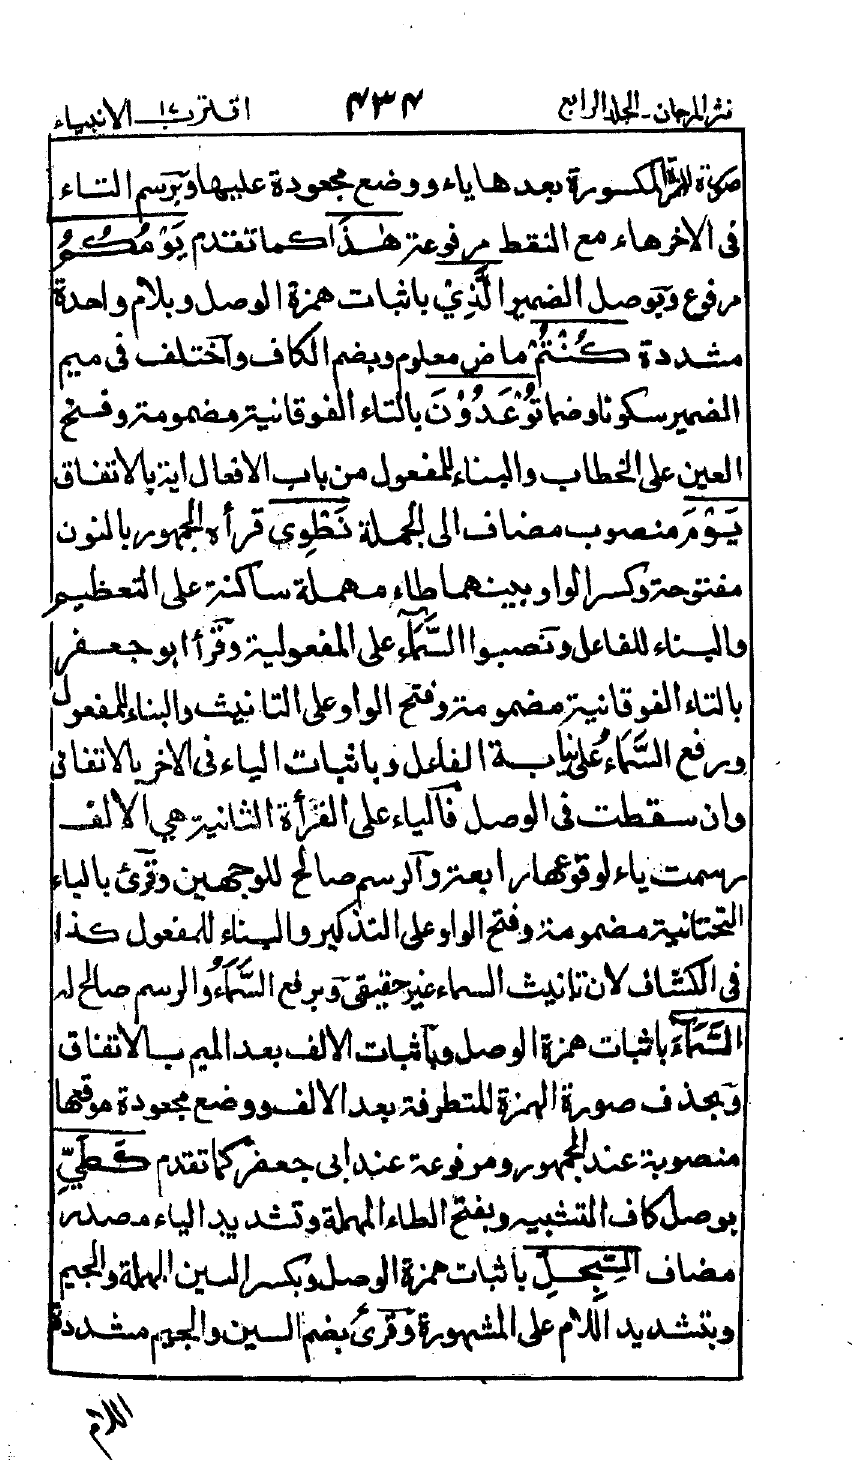 نثر المرجان - الجلد الرابع ٤٣٤ اقترب ١٧ الانبياء
صورة الهمزة المكسورة بعدها ياء ووضع مجعودة عليها وَبرسم التاء
فى الاخر هاء مع النقط مرفوعة هٰذَا كما تقدم يَوْمُكُمُ
مرفوع وَبوصل الضمير الَّذِيْ باثبات همزة الوصل وبلام واحدة
مشددة كُنْتُمْ ماض معلوم وبضم الكاف وآختلف فى ميم
الضمير سكونا وضما تُوْعَدُوْنَ بالتاء الفوقانية مضمومة وفتح
العين على الخطاب والبناء للمفعول من باب الافعال اية بالاتفاق
يَوْمَ منصوب مضاف الى الجملة نَطْوِي قرأه الجمهور بالنون
مفتوحة وكسر الواو بينهما طاء مهملة ساكنة على التعظيم
والبناء للفاعل ونصبوا السَّمَاءَ على المفعولية وقرأ ابو جعفر
بالتاء الفوقانية مضمومة وفتح الواو على التانيث والبناء للمفعول
وبرفع السَّمَاءُ على نيابة الفاعل وباثبات الياء فى الاخر بالاتفاق
وان سقطت فى الوصل فآلياء على القرأة الثانية هي الالف
رسمت ياء لوقوعها رابعة وآلرسم صالح للوجهين وقرئ بالياء
التحتانية مضمومة وفتح الواو على التذكير والبناء للمفعول كذا
فى الكشاف لان تانيث السماء غير حقيقى وَبرفع السَّمَاءُ والرسم صالح له
السَّمَاءَ باثبات همزة الوصل وبآثبات الالف بعد الميم بالاتفاق
وَبحذف صورة الهمزة المتطرفة بعد الالف ووضع مجعودة موقعها
منصوبة عند الجمهور ومرفوعة عند ابى جعفر كما تقدم كَطَيِّ
بوصل كاف التشبيه وبفتح الطاء المهملة وتشديد الياء مصدر
مضاف السِّجِلِّ باثبات همزة الوصل وبكسر السين المهملة والجيم
وبتشديد اللام على المشهورة وَقرئ بضم السين والجيم مشددة
اللام